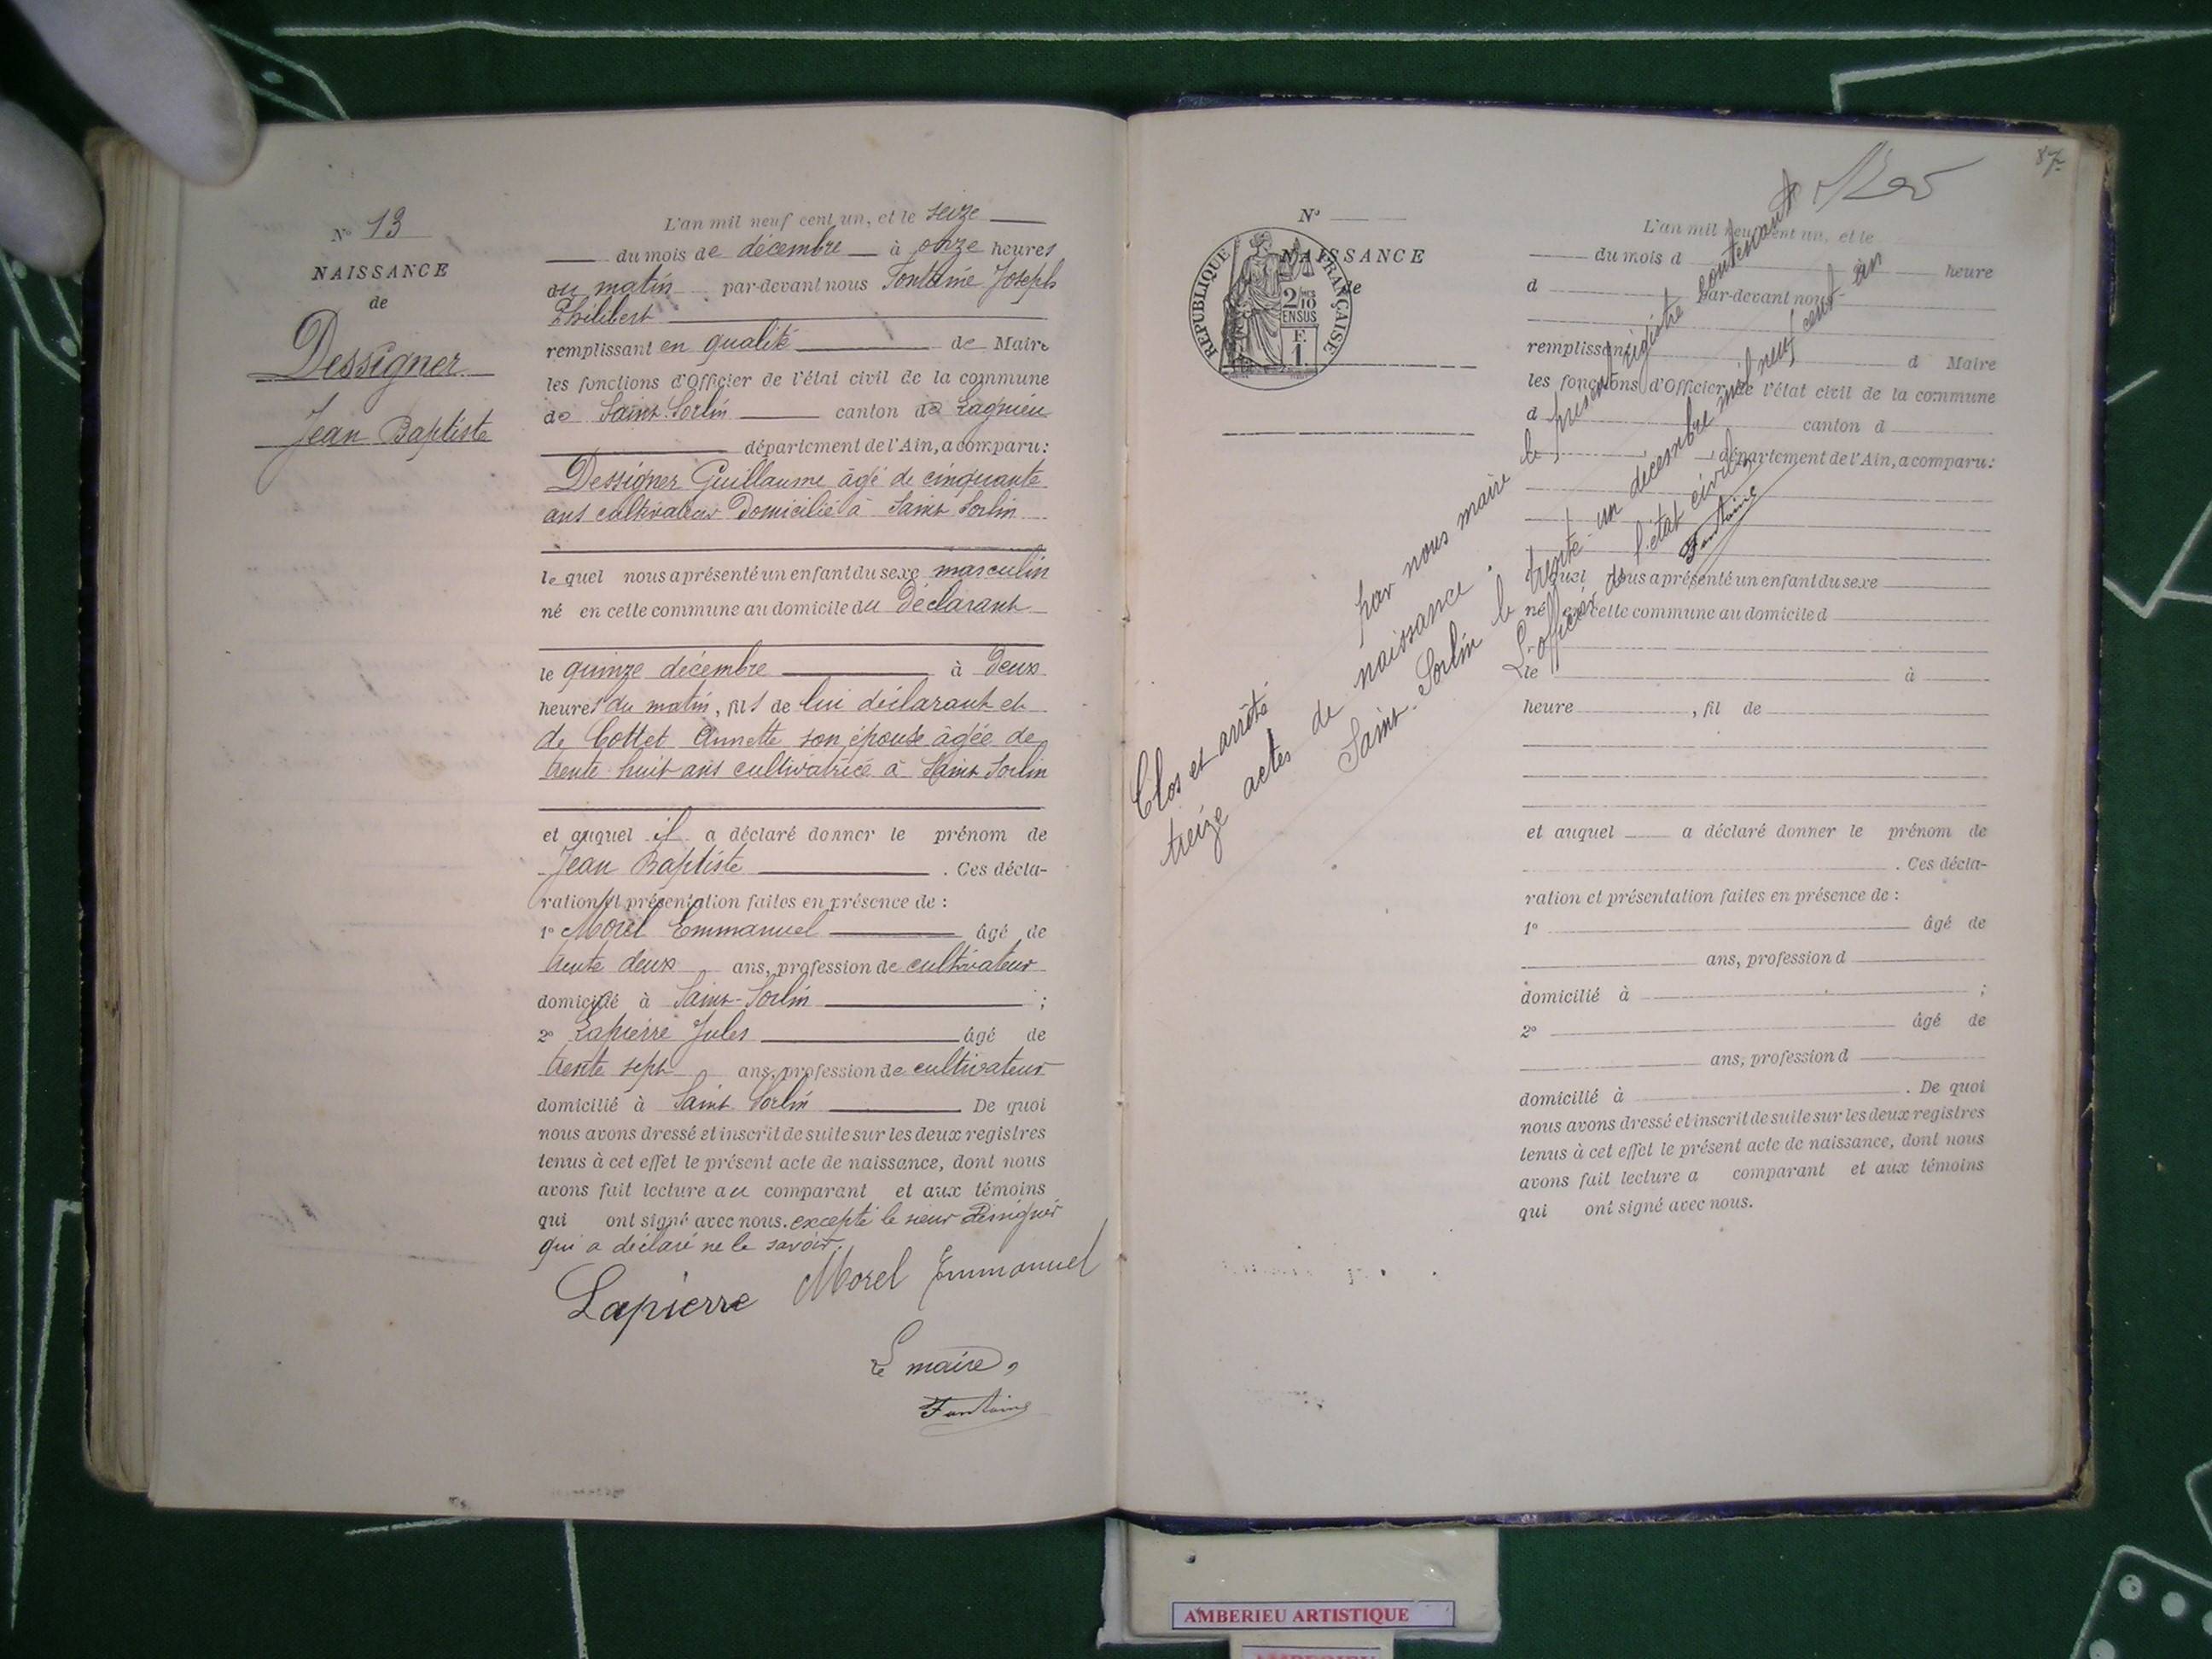 N° 13
NAISSANCE
de
Dessigner
Jean Baptiste
L'an mil neuf cent un, et le seize
du mois de décembre à onze heures
du matin par-devant nous Fontaine Joseph
Philibert
remplissant en qualité de Maire
les fonctions d'Officier de l'état civil de la commune
de Saint-Sorlin canton de Lagnieu
département de l'Ain, a comparu:
Dessigner Guillaume âgé de cinquante
ans cultivateur Domicilié à Saint Sorlin
le quel nous a présenté un enfant du sexe masculin
né en cette commune au domicile du Déclarant
le quinze décembre à Deux
heures du matin, fils de lui déclarant et
de Cottet Annette son épouse âgée de
trente huit ans cultivatrice à Saint Sorlin
et auquel il a déclaré donner le prénom de
Jean Baptiste . Ces décla-
ration et présentation faites en présence de :
1° Morel Emmanuel âgé de
trente deux ans, profession de cultivateur
domicilié à Saint-Sorlin ;
2° Lapierre Jules âgé de
trente sept ans, profession de cultivateur
domicilié à Saint Sorlin . De quoi
nous avons dressé et inscrit de suite sur les deux registres
tenus à cet effet le présent acte de naissance, dont nous
avons fait lecture au comparant et aux témoins
qui ont signé avec nous. excepté le sieur Dessigner
qui a déclaré ne le savoir.
Lapierre Morel Emmanuel
Le maire,
Fontaine
87
N°
NAISSANCE
de
RÉPUBLIQUE FRANÇAISE
2/10
EN SUS
F.
1.
L'an mil neuf cent un, et le
du mois d
heure
d par-devant nous
remplissant d Maire
les fonctions d'Officier de l'état civil de la commune
d canton d
, département de l'Ain, a comparu:
lequel nous a présenté un enfant du sexe
né en cette commune au domicile d
le à
heure , fil de
et auquel a déclaré donner le prénom de
. Ces décla-
ration et présentation faites en présence de :
1° âgé de
ans, profession d
domicilié à ;
2° âgé de
ans, profession d
domicilié à . De quoi
nous avons dressé et inscrit de suite sur les deux registres
tenus à cet effet le présent acte de naissance, dont nous
avons fait lecture a comparant et aux témoins
qui ont signé avec nous.
Clos et arrêté par nous maire le présent registre contenant
treize actes de naissance.
Saint-Sorlin le trente-un décembre mil neuf cent un
L'officier de l'état civil
Fontaine
AMBERIEU ARTISTIQUE